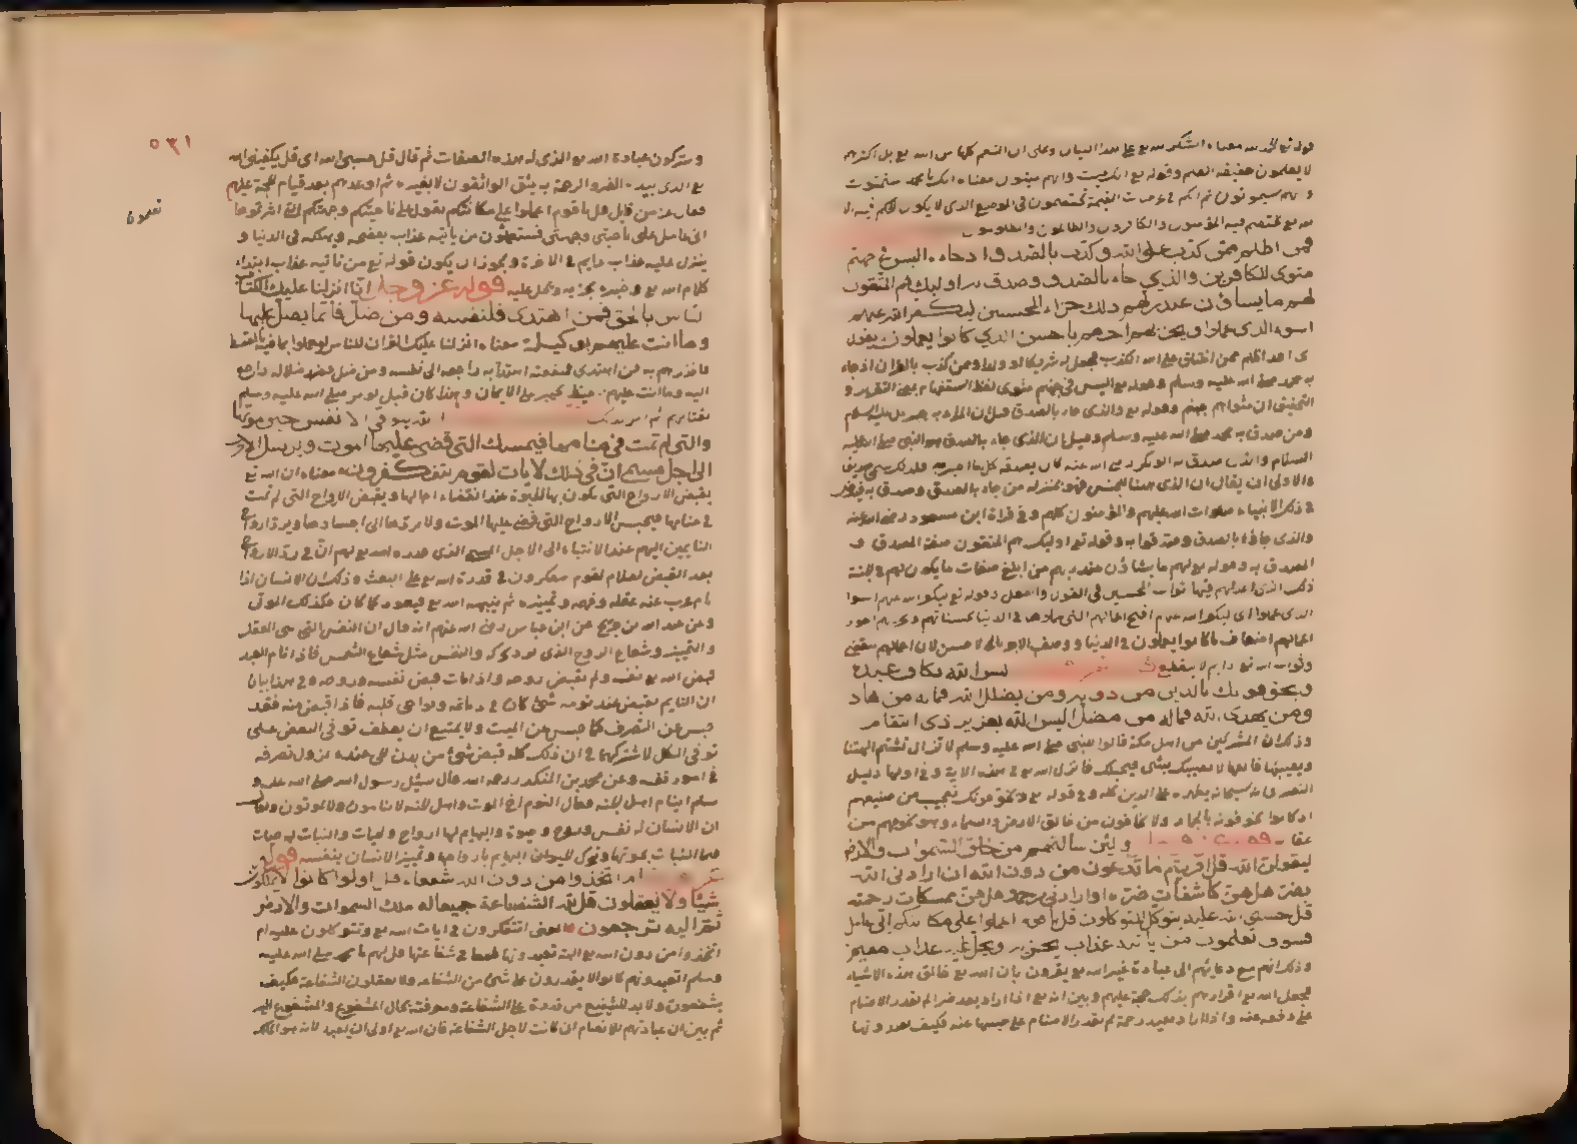 قوله تع الحمد لله معناه الشكر لله تع على هذا البيان وعلى ان النعم كلها من الله تع بل اكثرهم
لا يعلمون حقيقة النعم وقوله تع انك ميت وانهم ميتون معناه انك يا محمد ستموت
وهم سيموتون ثم انكم في عرصات القيمة تختصمون في الموضع الذي لا يكون الحكم فيه الا
لله تع يختصم فيه المؤمنون والكافرون والظالمون والمظلومون
فمن اظلم ممن كذب على الله وكذب بالصدق اذ جاءه اليس في جهنم
مثوى للكافرين والذي جاء بالصدق وصدق به اوليك هم المتقون
لهم ما يشاؤن عند ربهم ذلك جزاء المحسنين ليكفر الله عنهم
اسوء الذي عملوا ويجزيهم اجرهم باحسن الذي كانوا يعملون يقول
اي احد اظلم ممن اختلق على الله الكذب فجعل له شريكا او ولدا ومن كذب بالقران اذ جاء
به محمد صلى الله عليه وسلم وقوله تع اليس في جهنم مثوى لفظ استفهام بمعنى التقرير و
التحقيق ان مثواهم جهنم وقوله تع والذي جاء بالصدق قيل ان المراد به جبريل عليه السلام
ومن صدق به محمد صلى الله عليه وسلم وقيل ان الذي جاء بالصدق هو النبي صلى الله عليه
السلام والذي صدق به ابو بكر رضي الله عنه كان يصدقه كل ما اخبر به فلذلك سمي صديقا
والاولى ان يقال ان الذي ههنا للجنس فهو بمنزلة من جاء بالصدق وصدق به فيدخل
في ذلك الانبياء صلوات الله عليهم والمؤمنون كلهم وفي قراة ابن مسعود رضي الله عنه
والذي جاؤا بالصدق وصدقوا به وقوله تع اوليك هم المتقون صفة المصدق و
المصدق به وقوله تع لهم ما يشاؤن عند ربهم من ابلغ صفات ما يكون لهم في الجنة
ذلك الذي اعد لهم فيها ثواب المحسنين في القول والعمل وقوله تع ليكفر الله عنهم اسوا
الذي عملوا اي ليكفر الله عنهم اقبح اعمالهم التي عملوها في الدنيا بحسناتهم ويجزيهم اجور
اعمالهم اضعاف ما كانوا يعملون في الدنيا ووصف الاجر بالاحسن لان اعمالهم تنقضي
وثواب الله تع دايم لا ينقطع اليس الله بكاف عبده
ويخوفونك بالذين من دونه ومن يضلل الله فما له من هاد
ومن يهدي الله فما له من مضل اليس الله بعزيز ذي انتقام
وذلك ان المشركين من اهل مكة قالوا للنبي صلى الله عليه وسلم لا تزال تشتم الهتنا
وتعيبها فاتقها لا تصيبك بشئ فيخبلك فانزل الله تع هذه الاية وفي اولها دليل
النصر وانه سبحانه يظهره على الدين كله وفي قوله تع ويخوفونك تعجيب من صنيعهم
اذ كانوا يخوفونه بالجماد ولا يخافون من خالق الارض والسماء وهو يخوفهم من
عقابه ولئن سالتهم من خلق السموات والارض
ليقولن الله قل افرايتم ما تدعون من دون الله ان ارادني الله
بضر هل هن كاشفات ضره او ارادني برحمة هل هن ممسكات رحمته
قل حسبي الله عليه يتوكل المتوكلون قل يا قوم اعملوا على مكانتكم اني عامل
فسوف تعلمون من ياتيه عذاب يخزيه ويحل عليه عذاب مقيم
وذلك انهم مع دعائهم الى عبادة غير الله تع يقرون بان الله تع خالق هذه الاشياء
فجعل الله تع اقرارهم بذلك حجة عليهم وبين انه تع اذا اراد بعبد ضرا لم تقدر الاصنام
على دفعه عنه واذا اراد بعبد رحمة لم تقدر الاصنام على حبسها عنه فكيف تعبدونها
٥٣١
تعلمون
وتتركون عبادة الله تع الذي له هذه الصفات ثم قال قل حسبي الله اي قل يكفيني الله
تع الذي بيده الضر والرحمة به يثق الواثقون لا بغيره ثم اوعدهم بعد قيام الحجة عليهم
فقال عز من قائل قل يا قوم اعملوا على مكانتكم يقول على ناحيتكم وجهتكم التي اخترتموها
اني عامل على ناحيتي وجهتي فستعلمون من ياتيه عذاب يفضحه ويهلكه في الدنيا و
ينزل عليه عذاب دايم في الاخرة ويجوز ان يكون قوله تع من ياتيه عذاب ابتداء
كلام الله تع وخبره يخزيه ويحل عليه قوله عز وجل انا انزلنا عليك الكتاب
للناس بالحق فمن اهتدى فلنفسه ومن ضل فانما يضل عليها
وما انت عليهم بوكيل معناه انزلنا عليك القران للناس ليعملوا بما فيه بالقسط
فانذرهم به فمن اهتدى فمنفعة اهتدائه راجعة الى نفسه ومن ضل فضرر ضلاله راجع
اليه وما انت عليهم بحفيظ تجبرهم على الايمان وهذا كان قبل ان يومر صلى الله عليه وسلم
بقتالهم ثم امر بذلك الله يتوفى الانفس حين موتها
والتي لم تمت في منامها فيمسك التي قضى عليها الموت ويرسل الاخرى
الى اجل مسمى ان في ذلك لايات لقوم يتفكرون معناه ان الله تع
يقبض الارواح التي يكون بها الحيوة عند انقضاء اجالها ويقبض الارواح التي لم تمت
في منامها فيحبس الارواح التي قضى عليها الموت ولا يردها الى اجسادها ويرد ارواح
النايمين اليهم عند الانتباه الى الاجل المسمى الذي عنده الله تع لهم ان في رد الارواح
بعد القبض لعلام لقوم يتفكرون في قدرة الله تع على البعث وذلك ان الانسان اذا
نام عزب عنه عقله وفهمه وتمييزه ثم ينبهه الله تع فيعود كما كان فكذلك الموتى
وعن عبد الله بن جريج عن ابن عباس رضي الله عنهم انه قال ان النفس التي هي العقل
والتمييز وشعاع الروح الذي لا يدركه والنفس مثل شعاع الشمس فاذا نام العبد
قبض الله تع نفسه ولم يقبض روحه واذا مات قبض نفسه وروحه وفي هذا بيان
ان النايم يقبض عند نومه شئ كان في دماغه ونواحي قلبه فاذا قبض منه فقد
حبس عن التصرف كما حبس عن الميت ولا يمتنع ان يعطف توفي البعض على
توفي الكل لاشتراكهما في ان ذلك كله قبض شئ من بدن الحي عنده يزول تصرفه
في امور نفسه وعن محمد بن المنكدر رحمه الله قال سئل رسول الله صلى الله عليه و
سلم اينام اهل الجنة فقال النوم اخ الموت واهل الجنة لا ينامون ولا يموتون
ان الانسان له نفس وروح وحيوة والبهايم لها ارواح وحيات والنبات له حيات
فحياة النبات بموتها وتحرك الحيوان البهايم بارواحها وتمييز الانسان بنفسه قوله
عز وجل ام اتخذوا من دون الله شفعاء قل اولو كانوا لا يملكون
شيئا ولا يعقلون قل لله الشفاعة جميعا له ملك السموات والارض
ثم اليه ترجعون معنى ايتفكرون في ايات الله تع ويتوكلون عليه ام
اتخذوا من دون الله تع الهة تعبدونها طمعا في شفاعتها قل لهم يا محمد صلى الله عليه
وسلم اتعبدونهم كانوا لا يقدرون على شئ من الشفاعة ولا يعقلون الشفاعة فكيف
يشفعون ولا بد للشفيع من قدرة على الشفاعة ومعرفة بحال المشفوع والمشفوع اليه
ثم بين ان عبادتهم للاصنام ان كانت لاجل الشفاعة فان الله تع اولى ان يعبد لانه هو المالك